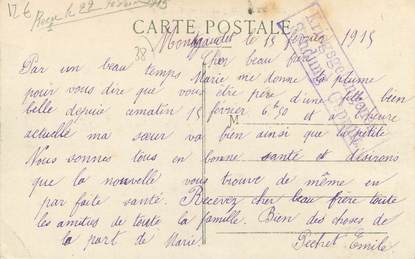 12 €
Reçu le 27 février 1915
CARTE POSTALE
38
Montgaudry le 15 février 1915
Cher beau frère
Par un beau temps Marie me donne la plume
pour vous dire que vous etre père d'une fille bien
belle depuis amatin 15 février 6h50 et a l'heure
actuelle ma sœur va bien ainsi que la petite
M
Nous sonnes tous en bonne santé et désirons
que la nouvelle vous trouve de même en
par faite santé. Recevez cher beau frère toute
les amitiés de toute la famille. Bien des choses de
la part de Marie
Pechet Emile